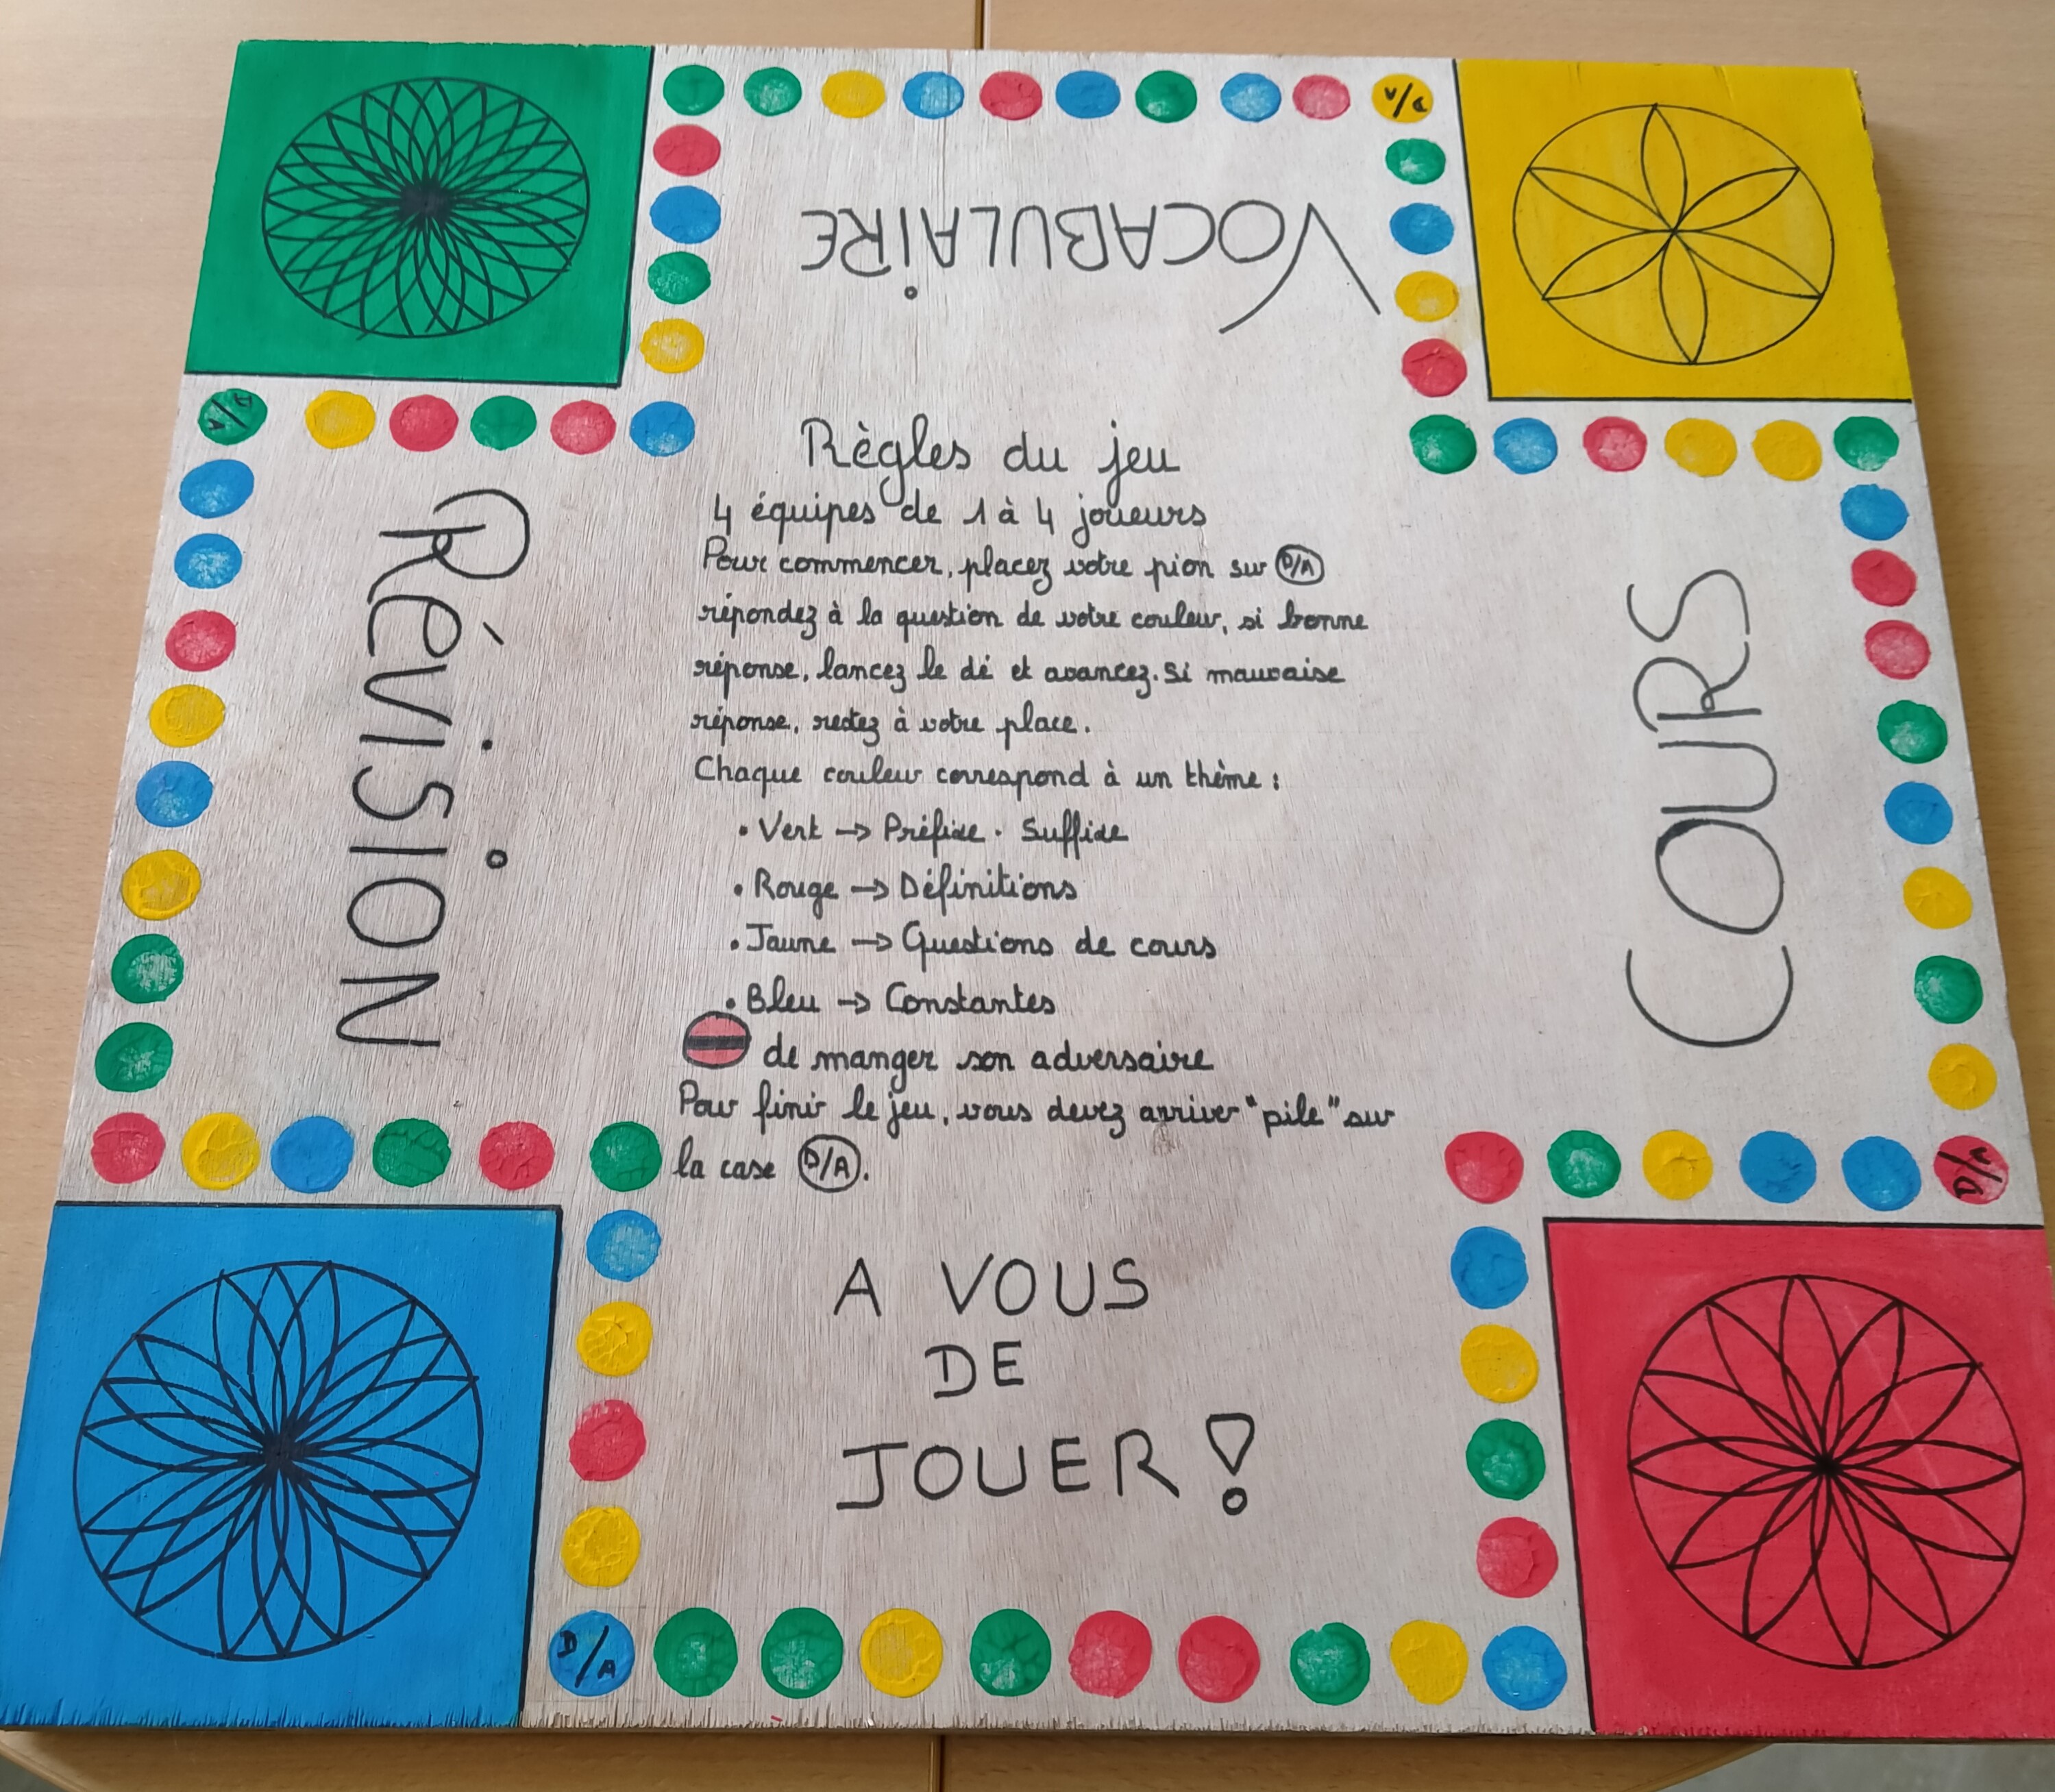 V/A
VOCABULAIRE
D/A
RéVISION
Règles du jeu
4 équipes de 1 à 4 joueurs
Pour commencer, placez votre pion sur D/A
répondez à la question de votre couleur, si bonne
réponse, lancez le dé et avancez. Si mauvaise
réponse, restez à votre place.
Chaque couleur correspond à un thème :
• Vert → Préfixe · Suffixe
• Rouge → Définitions
• Jaune → Questions de cours
• Bleu → Constantes
de manger son adversaire
Pour finir le jeu, vous devez arriver "pile" sur
la case D/A.
COURS
D/A
A VOUS
DE
JOUER !
D/A